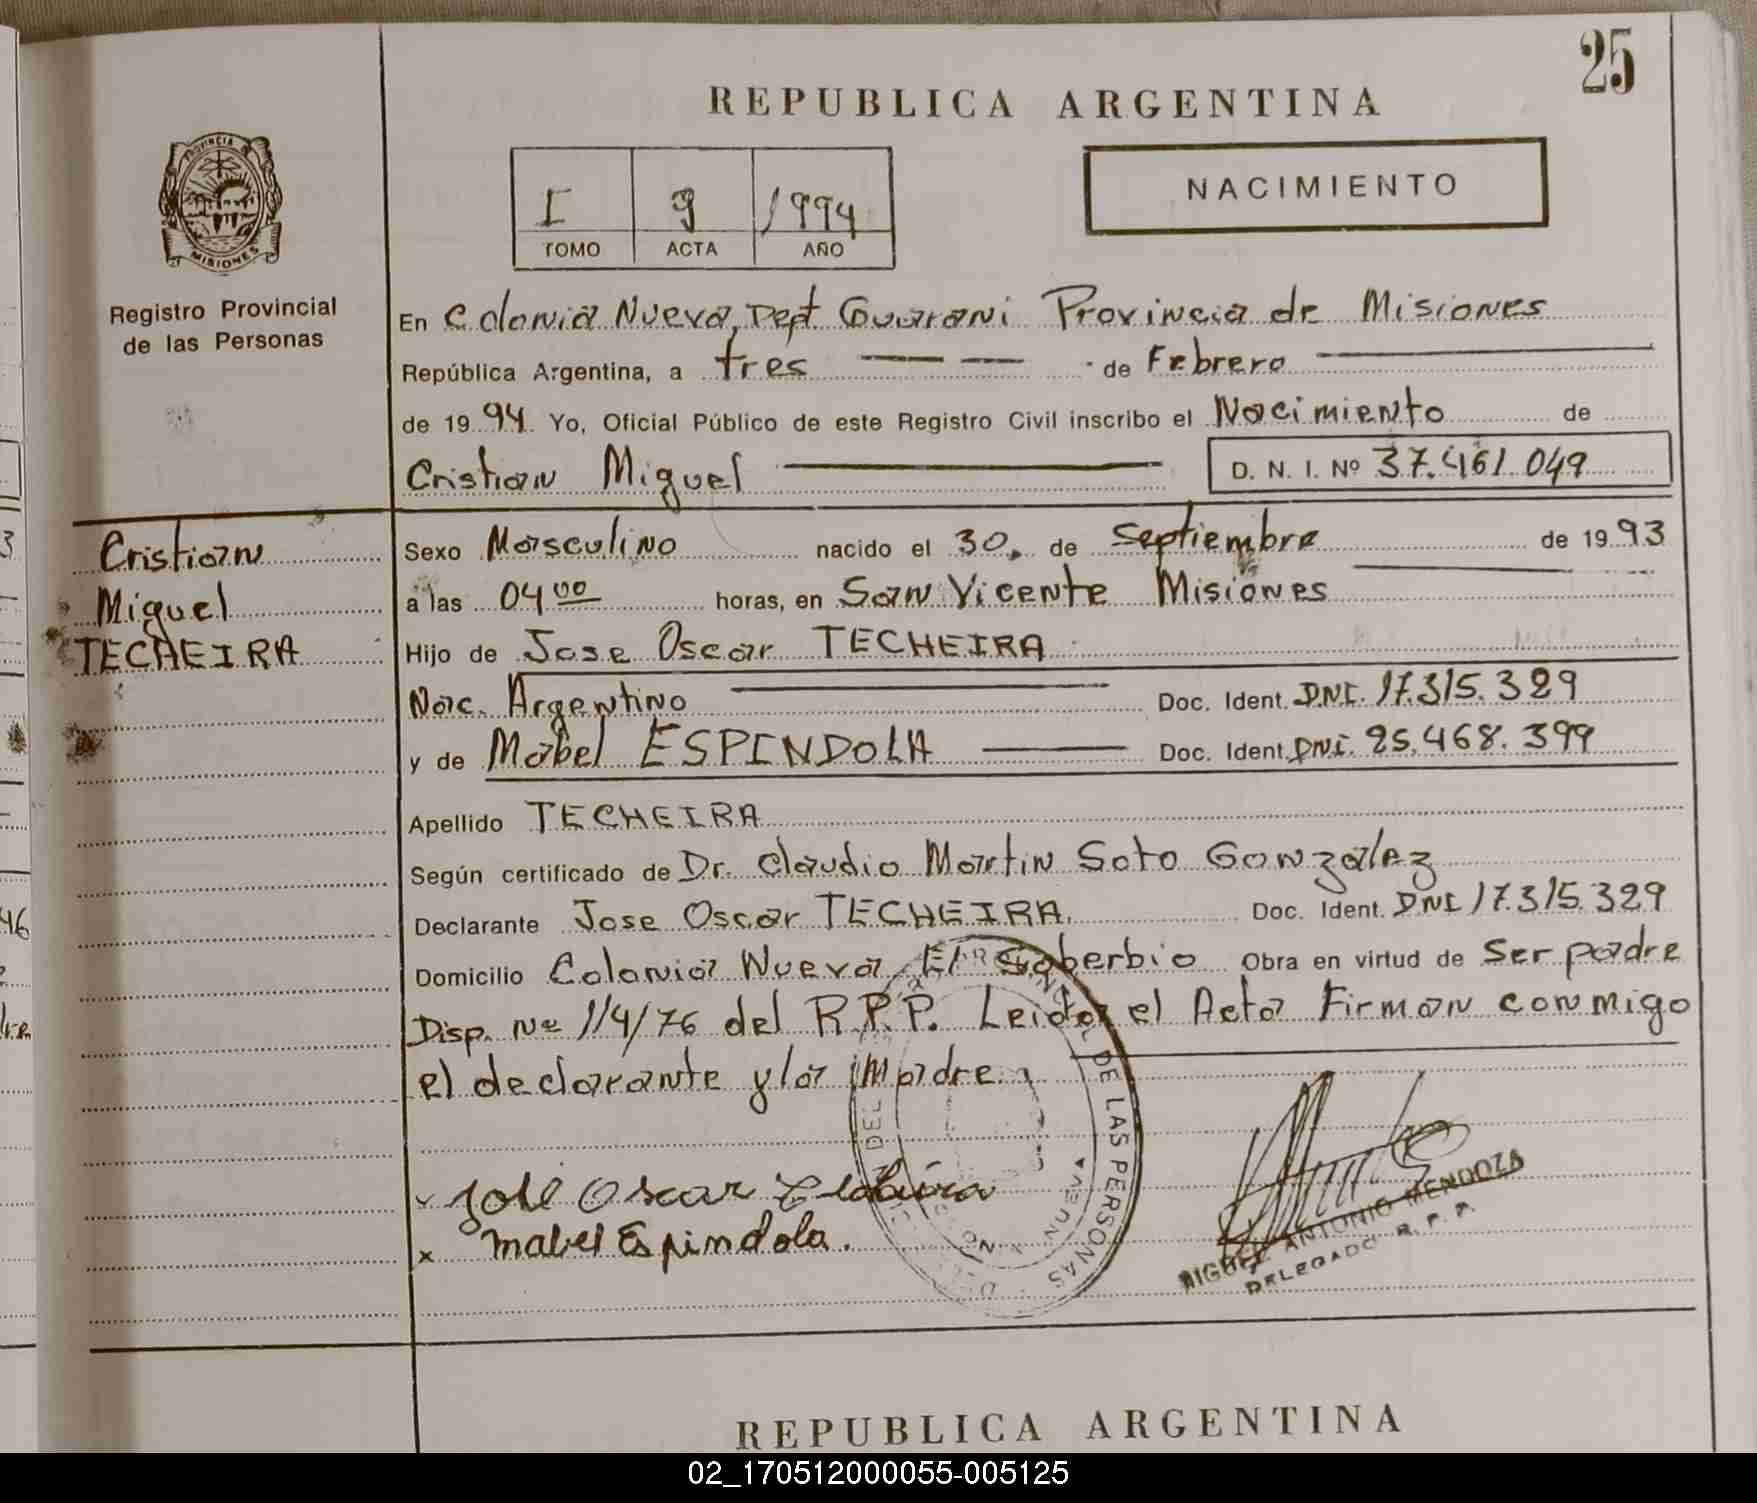 25
REPUBLICA ARGENTINA
PROVINCIA DE
MISIONES
I 9 1994
TOMO ACTA AÑO
NACIMIENTO
Registro Provincial
de las Personas
En Colonia Nueva, Dept Guarani Provincia de Misiones
República Argentina, a tres de Febrero
de 1994 Yo, Oficial Público de este Registro Civil inscribo el Nacimiento de
Cristian Miguel D. N. I. Nº 37.461.049
Cristian
Miguel
TECHEIRA
Sexo Masculino nacido el 30 de Septiembre de 1993
a las 04 00 horas, en San Vicente Misiones
Hijo de Jose Oscar TECHEIRA
Nac. Argentino Doc. Ident. DNI. 17.315.329
y de Mabel ESPINDOLA Doc. Ident. DNI. 25.468.399
Apellido TECHEIRA
Según certificado de Dr. Claudio Martin Soto Gonzalez
Declarante Jose Oscar TECHEIRA. Doc. Ident. DNI 17.315.329
Domicilio Colonia Nueva El Soberbio Obra en virtud de Ser padre
Disp. Nº 114/76 del R.P.P. Leida el Acta Firman conmigo
el declarante y la Madre
José Oscar Techeira
x Mabel Espindola.
DE LAS PERSONAS
NUEVA
MIGUEL ANTONIO MENDOZA
DELEGADO R. P. P.
REPUBLICA ARGENTINA
02_170512000055-005125